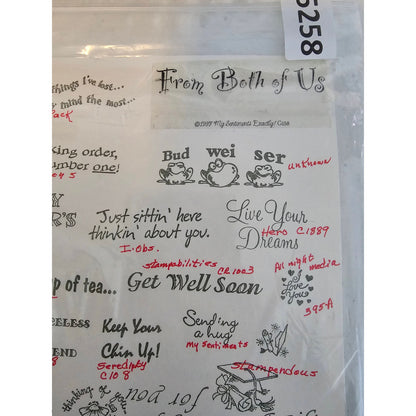 5258
things I've lost...
mind the most...
From Both of Us
©1997 My Sentiments Exactly! Case
king order,
number one!
Bud wei ser
unknown
Just sittin' here
thinkin' about you.
I-Obs.
Live Your
Dreams
Hero C1889
stampabilities
CR1003
All night
media
p of tea...
Get Well Soon
I
Love
You
395A
Keep Your
Chin Up!
Sending
a hug
my sentiments
END
Seredipity
C10 8
Stampendous
thinking of
for you